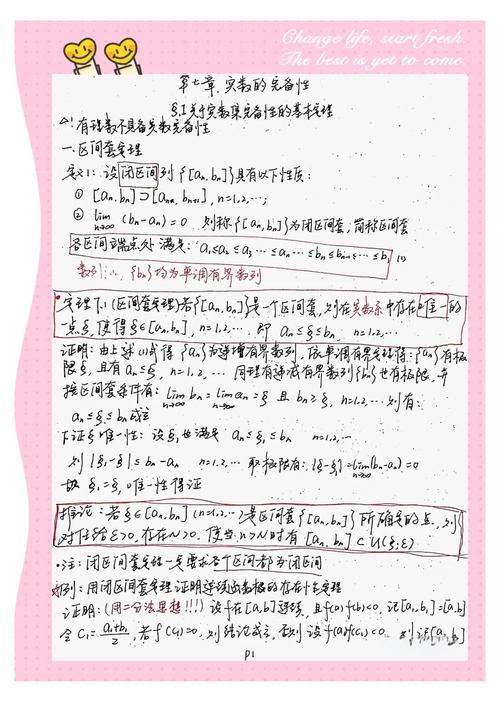 Change life, start fresh.
The best is yet to come.
第七章 实数的完备性
§.1 关于实数集完备性的基本定理
△! 有理数不具备实数完备性
一.区间套定理
定义1: 设闭区间列{[an,bn]}具有以下性质:
① [an,bn]⊃[an+1,bn+1],n=1,2,…;
② lim n→∞ (bn-an)=0 则称{[an,bn]}为闭区间套,简称区间套
各区间端点处满足: a1≤a2≤a3…≤an…≤bn≤bn-1…≤b1 (1)
数列…, {bn}均为单调有界数列
定理7.1(区间套定理)若{[an,bn]}是一个区间套,则在实数系中存在唯一的
一点ξ,使得ξ∈[an,bn], n=1,2,…, 即 an≤ξ≤bn, n=1,2,…
证明:由上述(1)式得{an}为递增有界数列,依单调有界定理得:{an}有极
限ξ,且有an≤ξ, n=1,2,… 同理有递减有界数列{bn}也有极限,并
按区间套条件有: lim n→∞ bn = lim n→∞ an = ξ 且 bn≥ξ, n=1,2,… 则有:
an≤ξ≤bn成立
下证ξ唯一性: 设ξ1也满足 an≤ξ1≤bn n=1,2,…
则 |ξ1-ξ|≤bn-an n=1,2,… 取极限有: |ξ-ξ1|=lim n→∞ (bn-an)=0
故 ξ1=ξ,唯一性得证
推论:若ξ∈[an,bn] (n=1,2,…)是区间套{[an,bn]}所确定的点,则
对任给ε>0,存在N>0,使当n>N时有[an,bn]⊂U(ξ;ε)
•注: 闭区间套定理一定要求各个区间都为闭区间
例: 用闭区间套定理证明连续函数根的存在性定理
证明:(用二分法思想!!!)设f在[a,b]连续,且f(a)f(b)<0,记[a1,b1]=[a,b]
令C1=a1+b1/2,若f(C1)=0,则结论成立,否则设f(a)f(C1)<0 则记[a2,b2]
P1